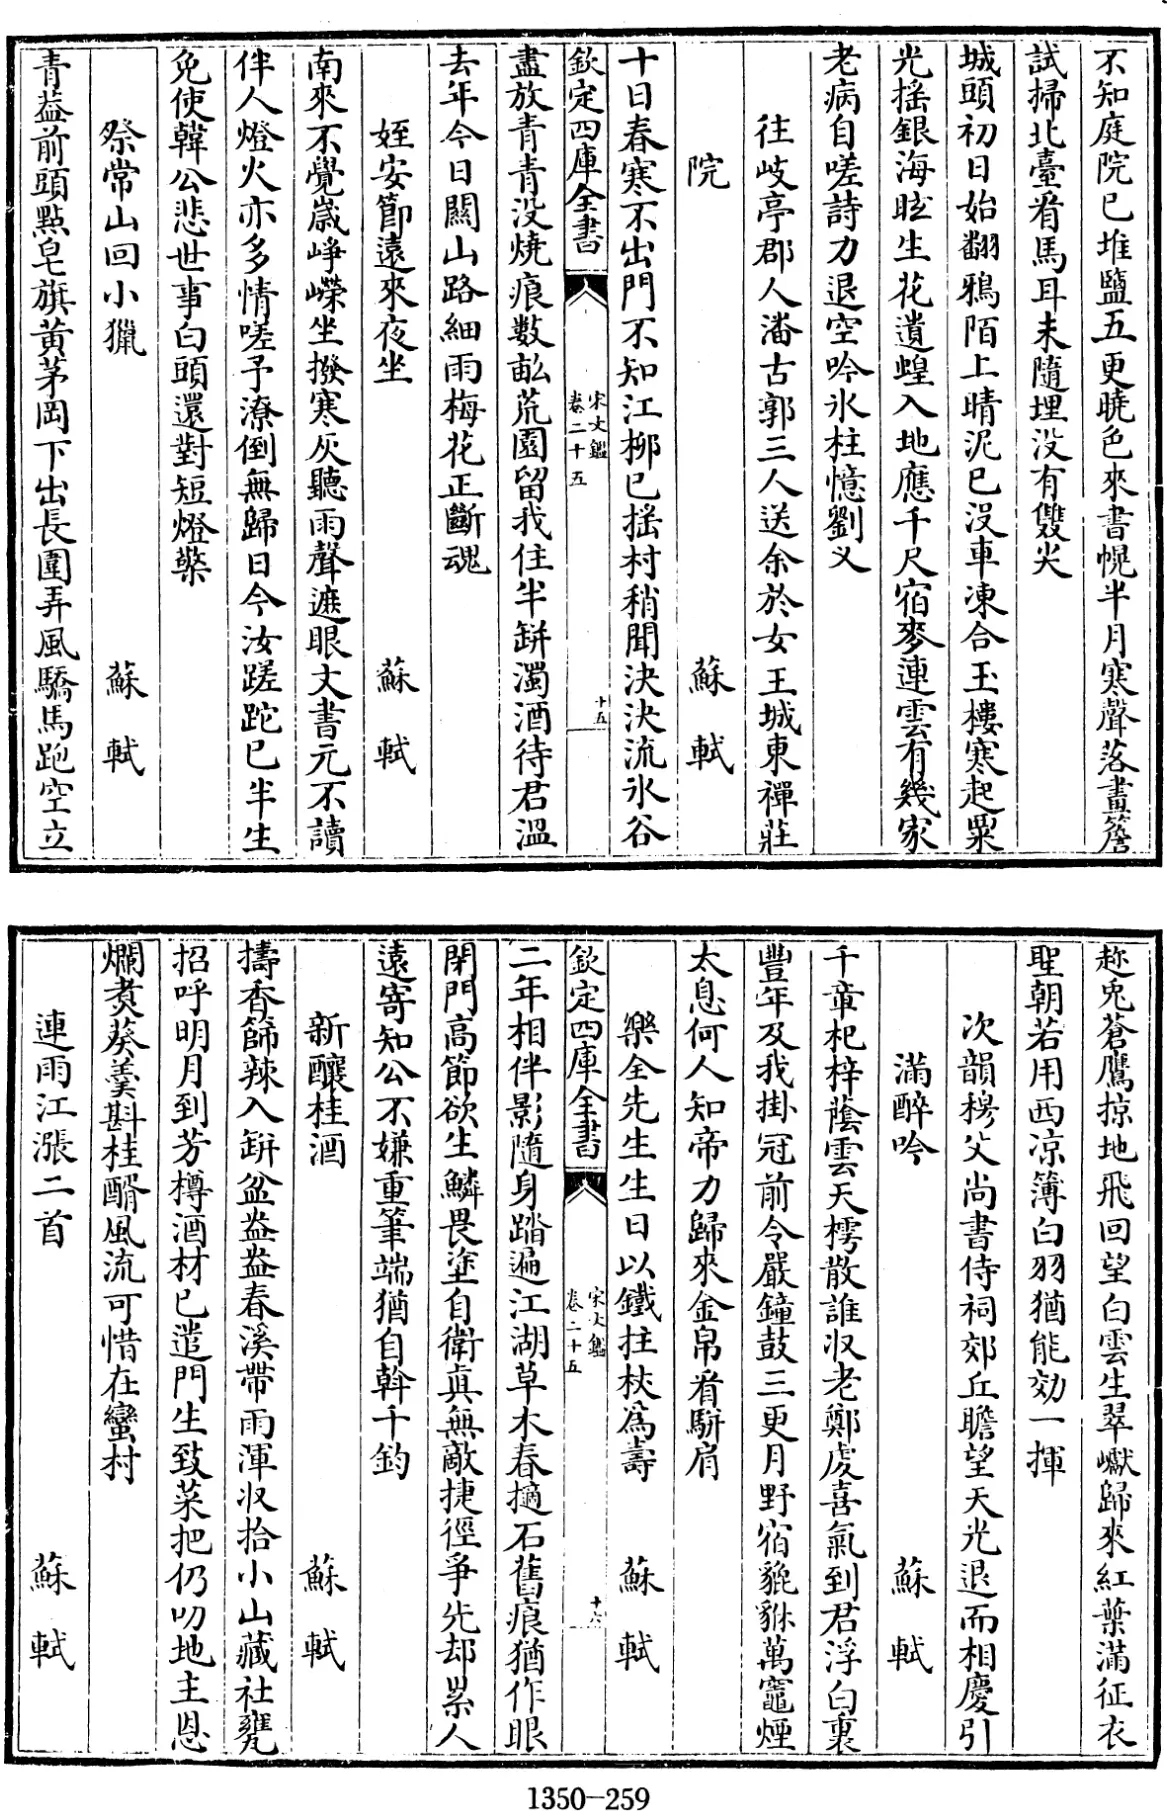 不知庭院已堆鹽五更曉色來書幌半月寒聲落畫簷
試掃北臺看馬耳未隨埋没有雙尖
城頭初日始翻鴉陌上晴泥已没車凍合玉樓寒起粟
光搖銀海眩生花遺蝗入地應千尺宿麥連雲有幾家
老病自嗟詩力退空吟氷柱憶劉乂
往岐亭郡人潘古郭三人送余於女王城東禪莊
院
蘇軾
十日春寒不出門不知江柳已揺村稍聞決決流氷谷
欽定四庫全書
宋文鑑
卷二十五
十五
盡放青青没燒痕數畝荒園留我住半缾濁酒待君温
去年今日關山路細雨梅花正斷魂
姪安節遠來夜坐
蘇軾
南來不覺嵗崢嶸坐撥寒灰聽雨聲遮眼文書元不讀
伴人燈火亦多情嗟予潦倒無歸日今汝蹉跎已半生
免使韓公悲世事白頭還對短燈檠
祭常山回小獵
蘇軾
青蓋前頭點皂旗黃茅岡下出長圍弄風驕馬跑空立
趂兎蒼鷹掠地飛回望白雲生翠巘歸來紅葉滿征衣
聖朝若用西凉簿白羽猶能効一揮
次韻穆父尚書侍祠郊丘瞻望天光退而相慶引
滿醉吟
蘇軾
千章杞梓蔭雲天樗散誰収老鄭䖍喜氣到君浮白裏
豐年及我掛冠前令嚴鐘鼓三更月野宿貔貅萬竈煙
太息何人知帝力歸來金帛看駢肩
樂全先生生日以鐵拄杖爲壽
蘇軾
欽定四庫全書
宋文鑑
卷二十五
十六
二年相伴影隨身踏遍江湖草木春擿石舊痕猶作眼
閉門高節欲生鱗畏塗自衛真無敵捷徑爭先却累人
遠寄知公不嫌重筆端猶自斡千鈞
新釀桂酒
蘇軾
擣香篩辣入缾盆盎盎春溪帶雨渾収拾小山藏社甕
招呼明月到芳樽酒材已遣門生致菜把仍叨地主恩
爛煑葵羮斟桂醑風流可惜在蠻村
連雨江漲二首
蘇軾
1350-259